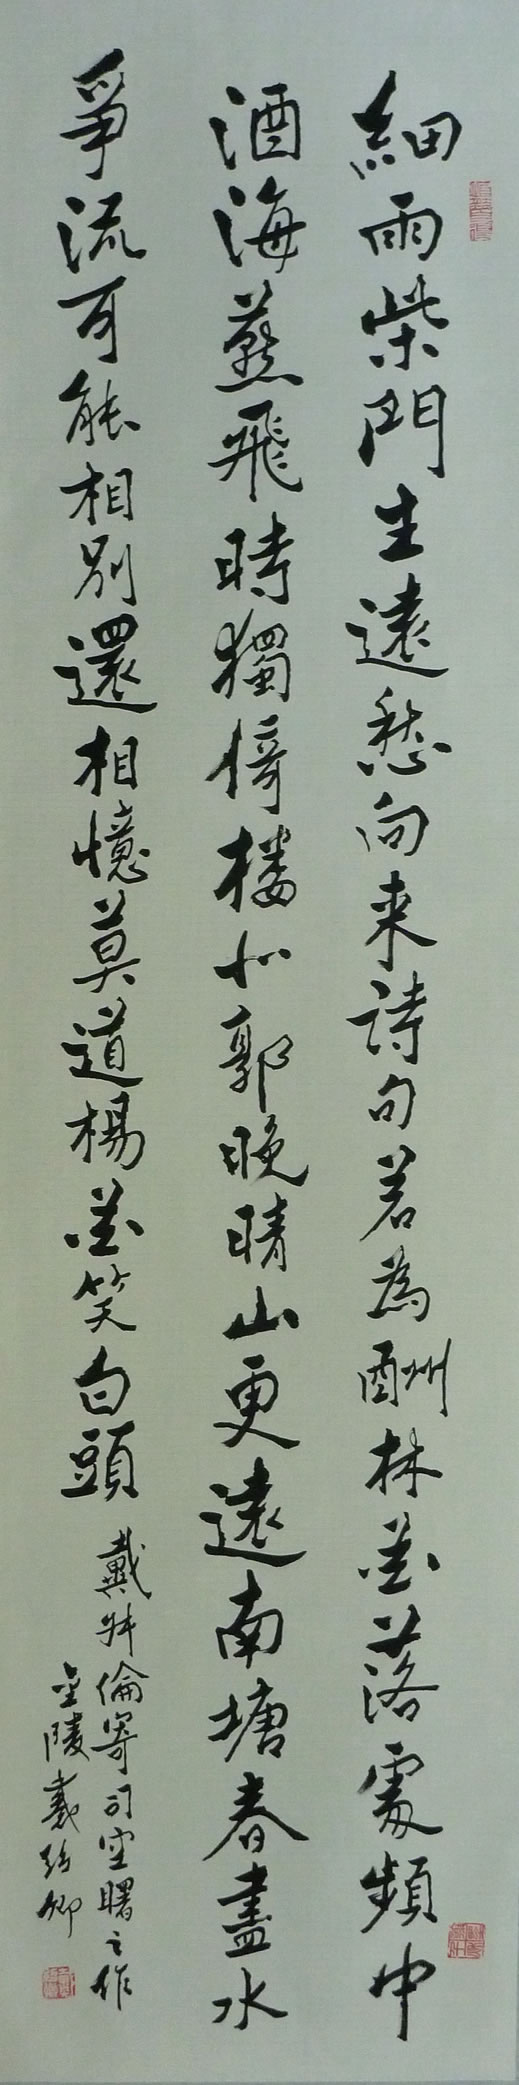 細雨柴門生遠愁向来詩句若為酬林花落處頻中
酒海燕飛時獨倚楼北郭晚晴山更遠南塘春盡水
爭流可能相別還相憶莫道楊花笑白頭
戴叔倫寄司空曙之作
金陵戴
卿